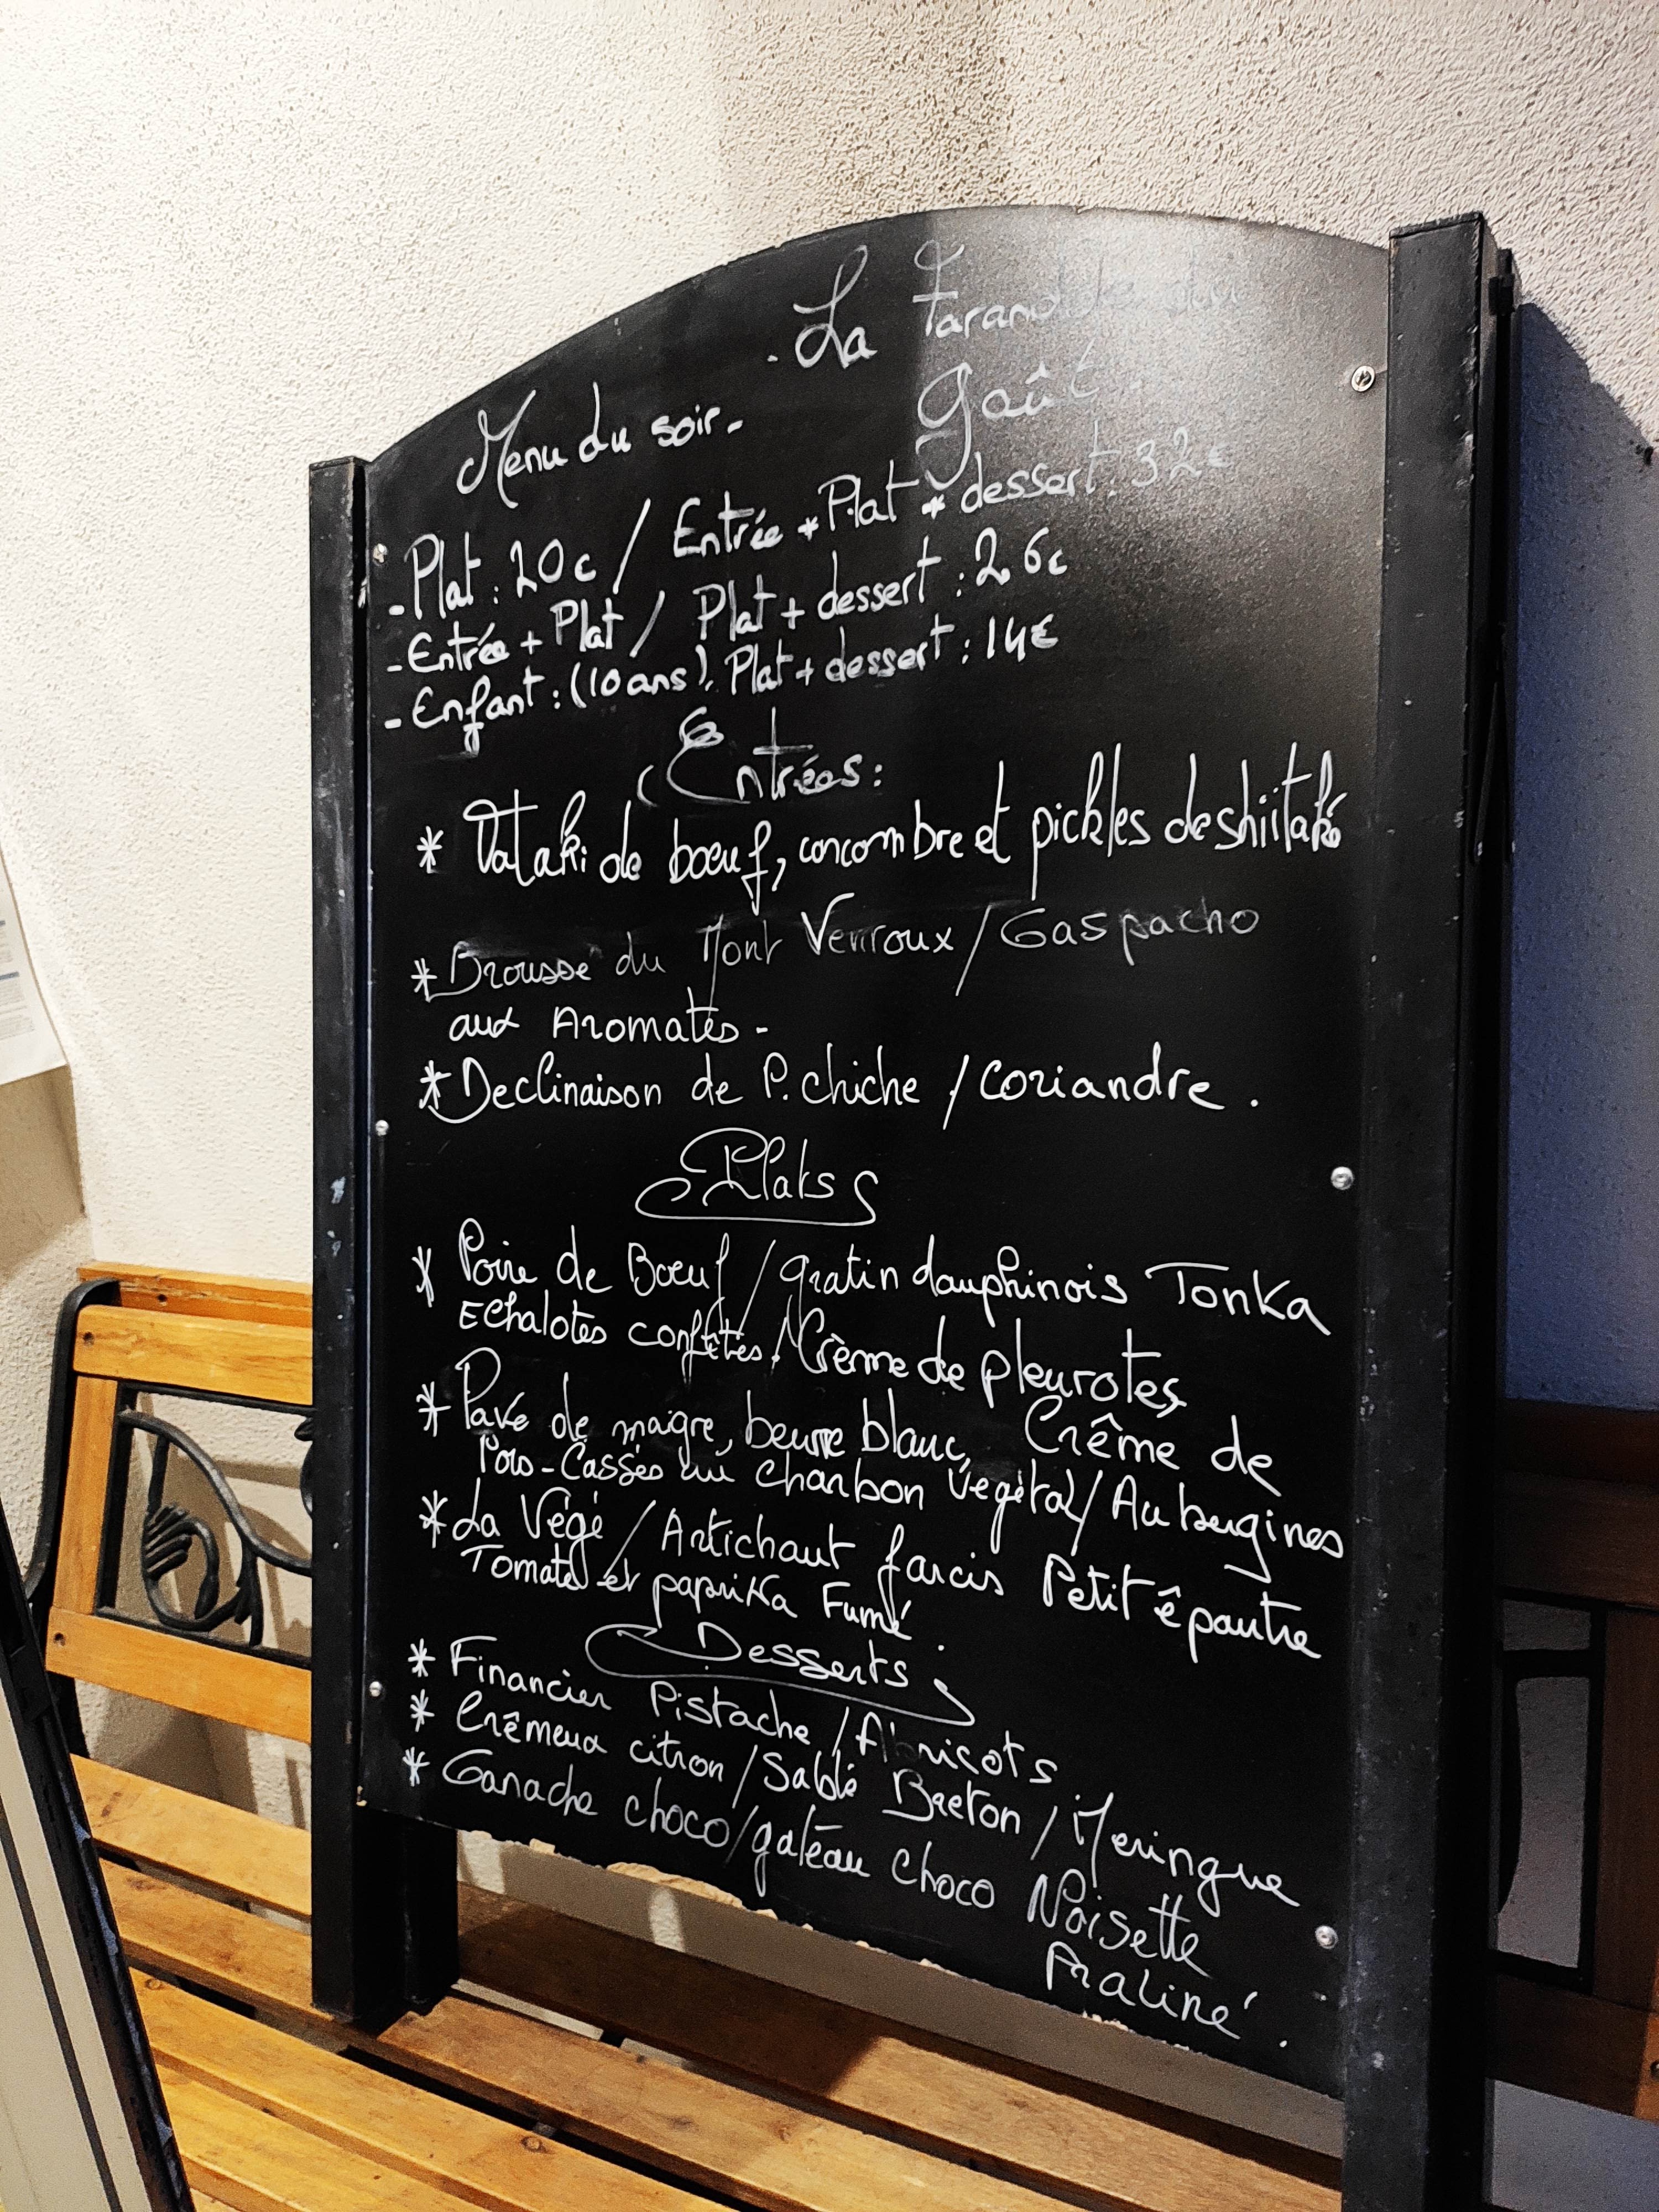 - La Farandole du
Goût -
Menu du soir -
- Plat : 20€ / Entrée + Plat + dessert : 32€
- Entrée + Plat / Plat + dessert : 26€
- Enfant : (10 ans). Plat + dessert : 14€
Entrées :
* Tataki de boeuf, concombre et pickles de shiitaké
* Brousse du Mont Ventoux / Gaspacho
aux Aromates -
* Declinaison de P. chiche / coriandre .
Plats
* Poire de Boeuf / gratin dauphinois Tonka
Echalotes confites / Crème de pleurotes
* Pavé de maigre, beurre blanc, Crême de
Pois-Cassés au charbon végétal / Aubergines
* La Végé / Artichaut farcis Petit êpautre
Tomate et paprika Fumé .
Desserts
* Financier Pistache / Abricots
* Crêmeux citron / Sablé Breton / Meringue
* Ganache choco / gatêau choco Noisette
Praliné .